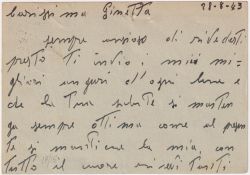 Carissima Ginetta 28-8-43
sempre ansioso di rivederti
presto ti invio i miei mi-
gliori auguri d'ogni bene e
che la tua salute si manten
ga sempre ottima come al presen
te si mantiene la mia, con
tutto il cuore